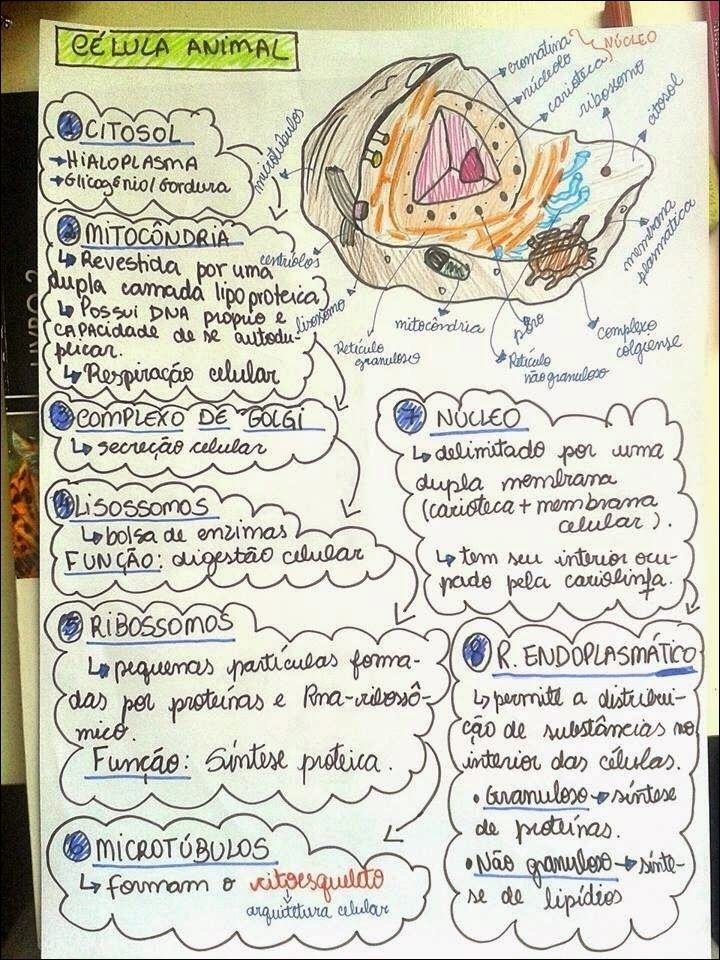 CÉLULA ANIMAL
cromatina
NÚCLEO
núcleolo
carioteca
ribossomo
citosol
microtúbulos
centríolos
lisossomo
Retículo
granuloso
mitocôndria
poro
Retículo
não granuloso
complexo
golgiense
membrana
plasmática
1 CITOSOL
HIALOPLASMA
Glicogênio/Gordura
2 MITOCÔNDRIA
Revestida por uma
dupla camada lipoproteica
Possui DNA próprio e
CAPACIDADE DE SE autodu-
plicar.
Respiração celular
3 COMPLEXO DE GOLGI
secreção celular
4 LISOSSOMOS
bolsa de enzimas
FUNÇÃO: digestão celular
5 RIBOSSOMOS
pequenas partículas forma-
das por proteínas e Rna-ribossô-
mico.
Função: Síntese proteica.
6 MICROTÚBULOS
formam o citoesqueleto
arquitetura celular
7 NÚCLEO
delimitado por uma
dupla membrana
(carioteca + membrana
celular).
tem seu interior ocu-
pado pela cariolinfa.
8 R. ENDOPLASMÁTICO
permite a distribui-
ção de substâncias no
interior das células.
• GRANULOSO síntese
de proteínas.
• Não granuloso sínte-
se de lipídios
LIVRO 2